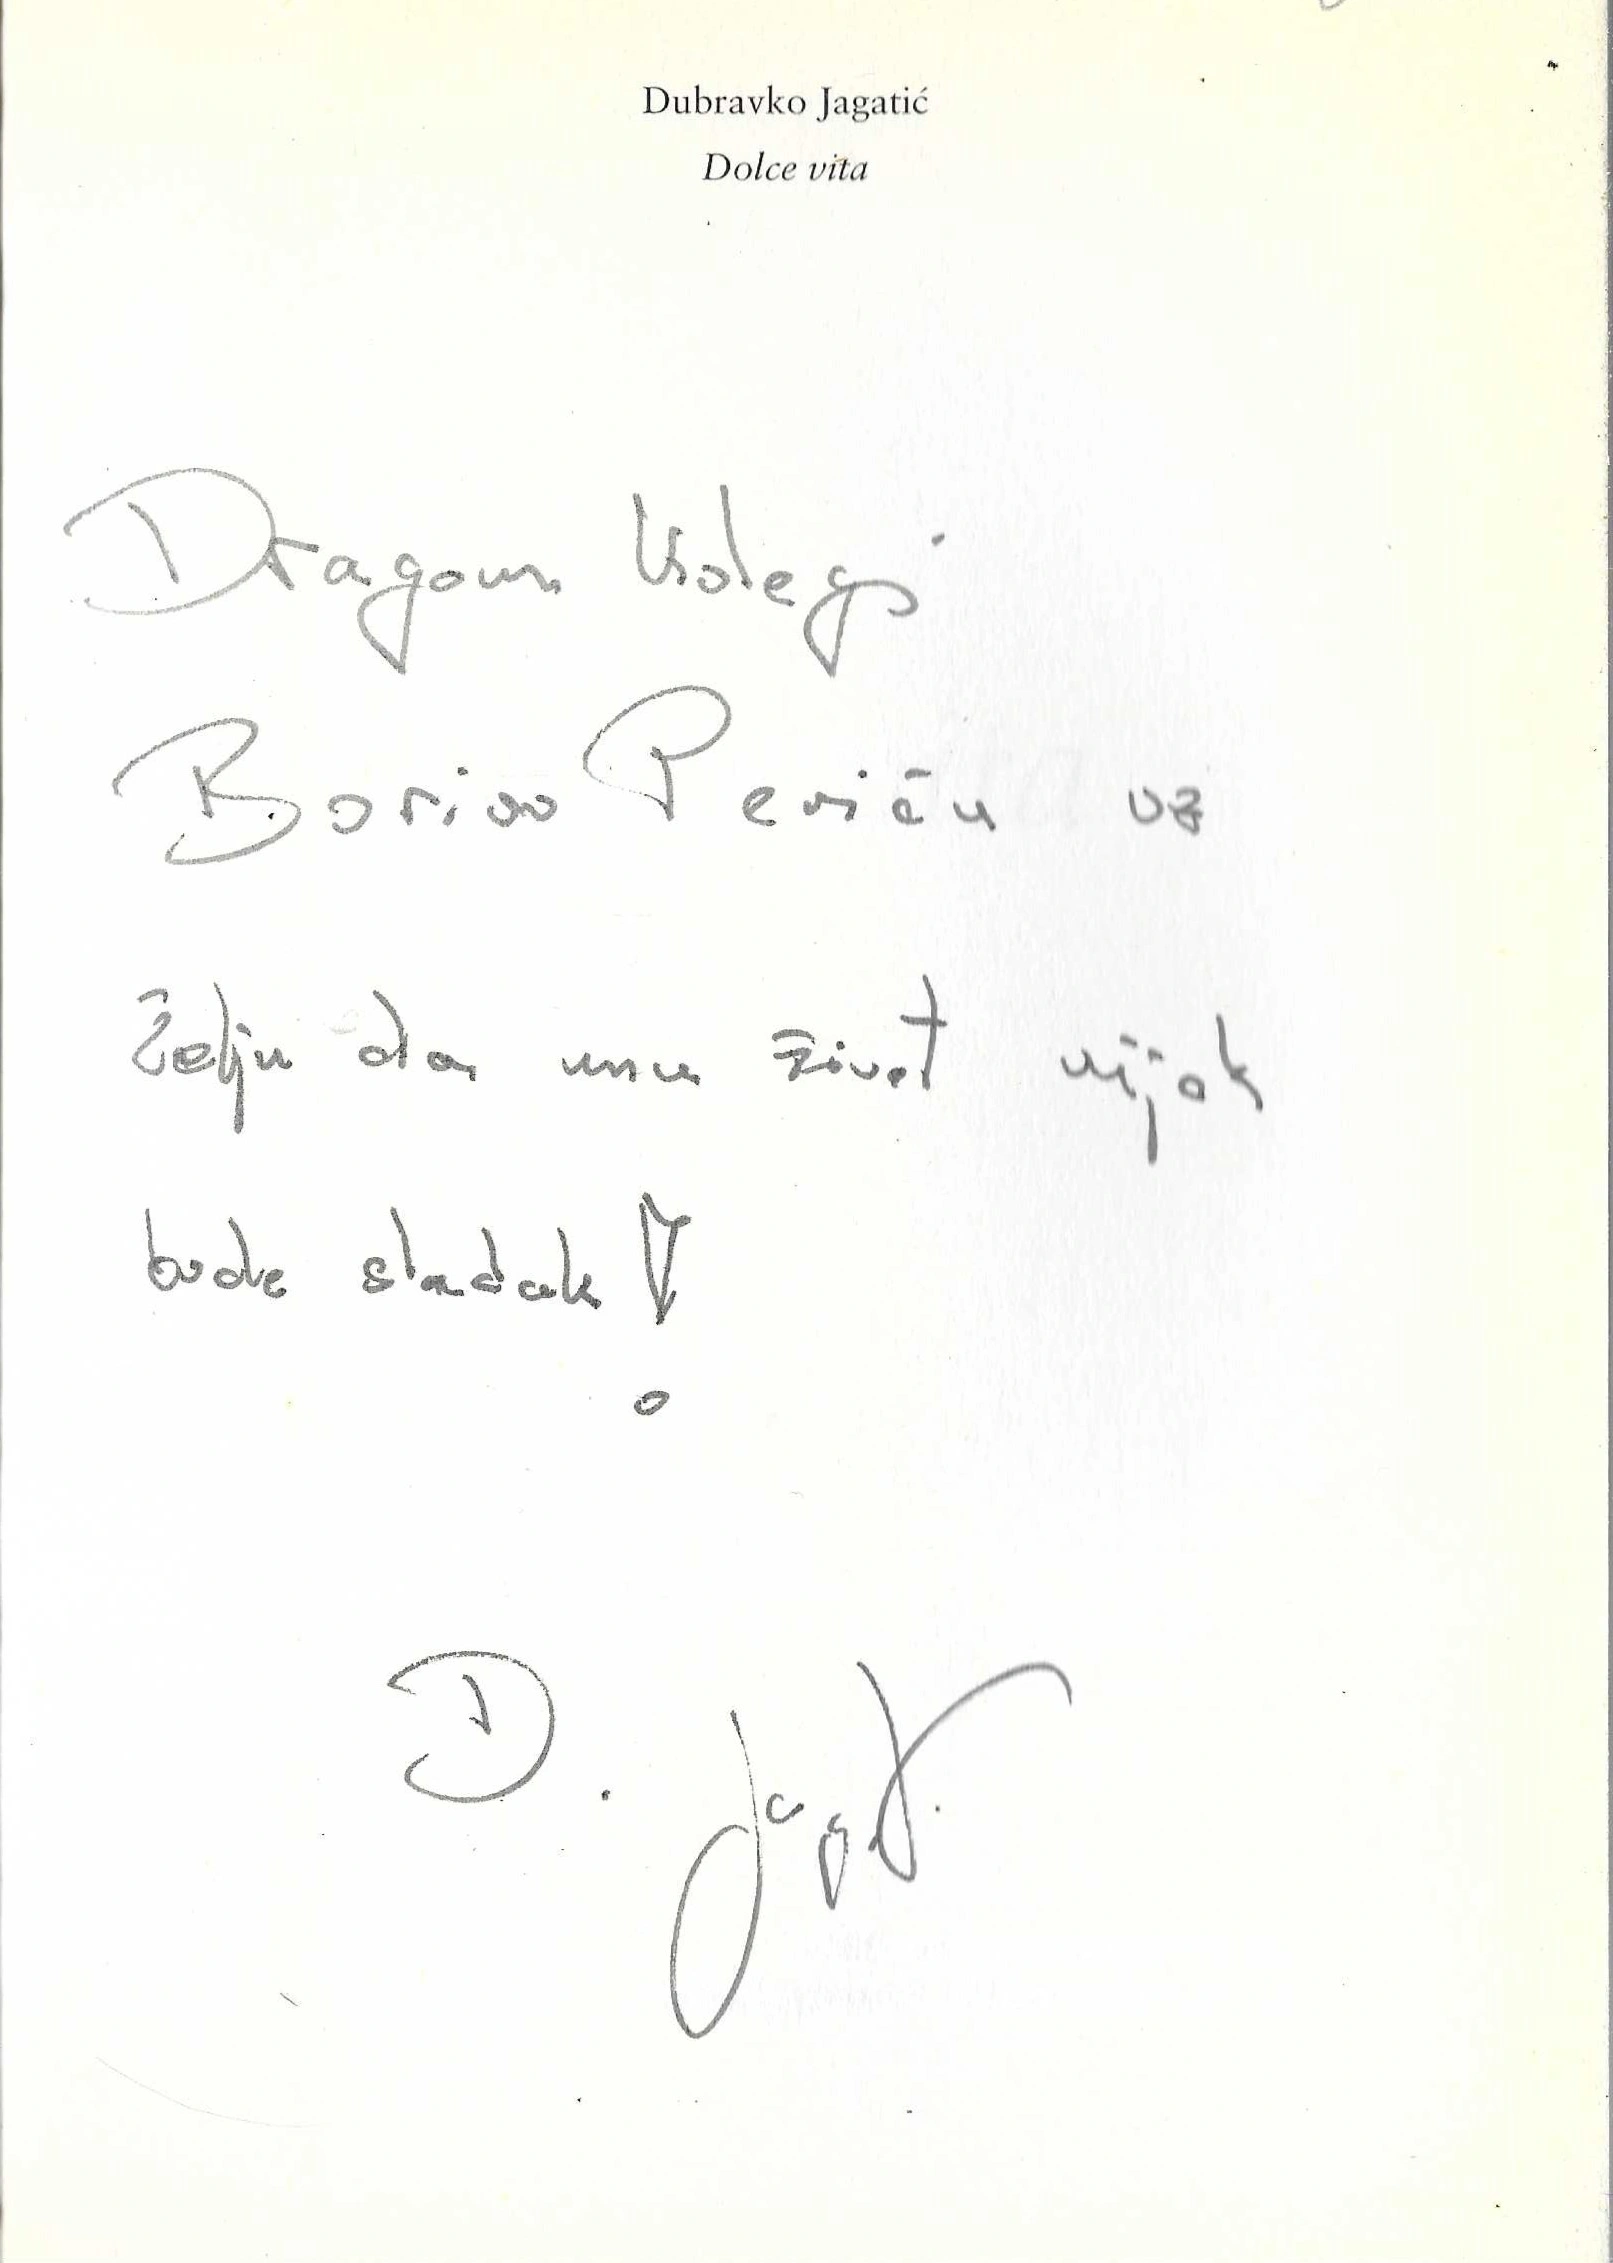 Dubravko Jagatić
Dolce vita
Dragom kolegi
Borisu Periću uz
želju da mu život uvijek
bude sladak!
D. Jagat.